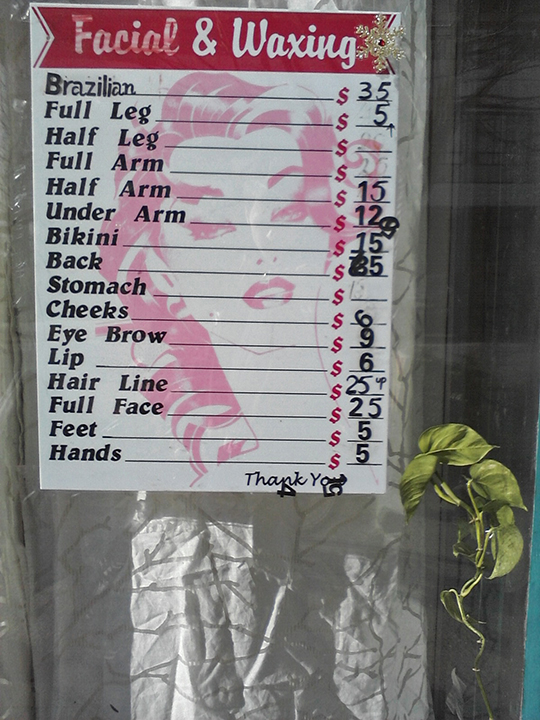 Facial & Waxing
Brazilian $ 35
Full Leg $ 5
Half Leg $
Full Arm $
Half Arm $ 15
Under Arm $ 12
Bikini $ 15
Back $ 35
Stomach $
Cheeks $ 6
Eye Brow $ 9
Lip $ 6
Hair Line $ 25
Full Face $ 25
Feet $ 5
Hands $ 5
Thank You